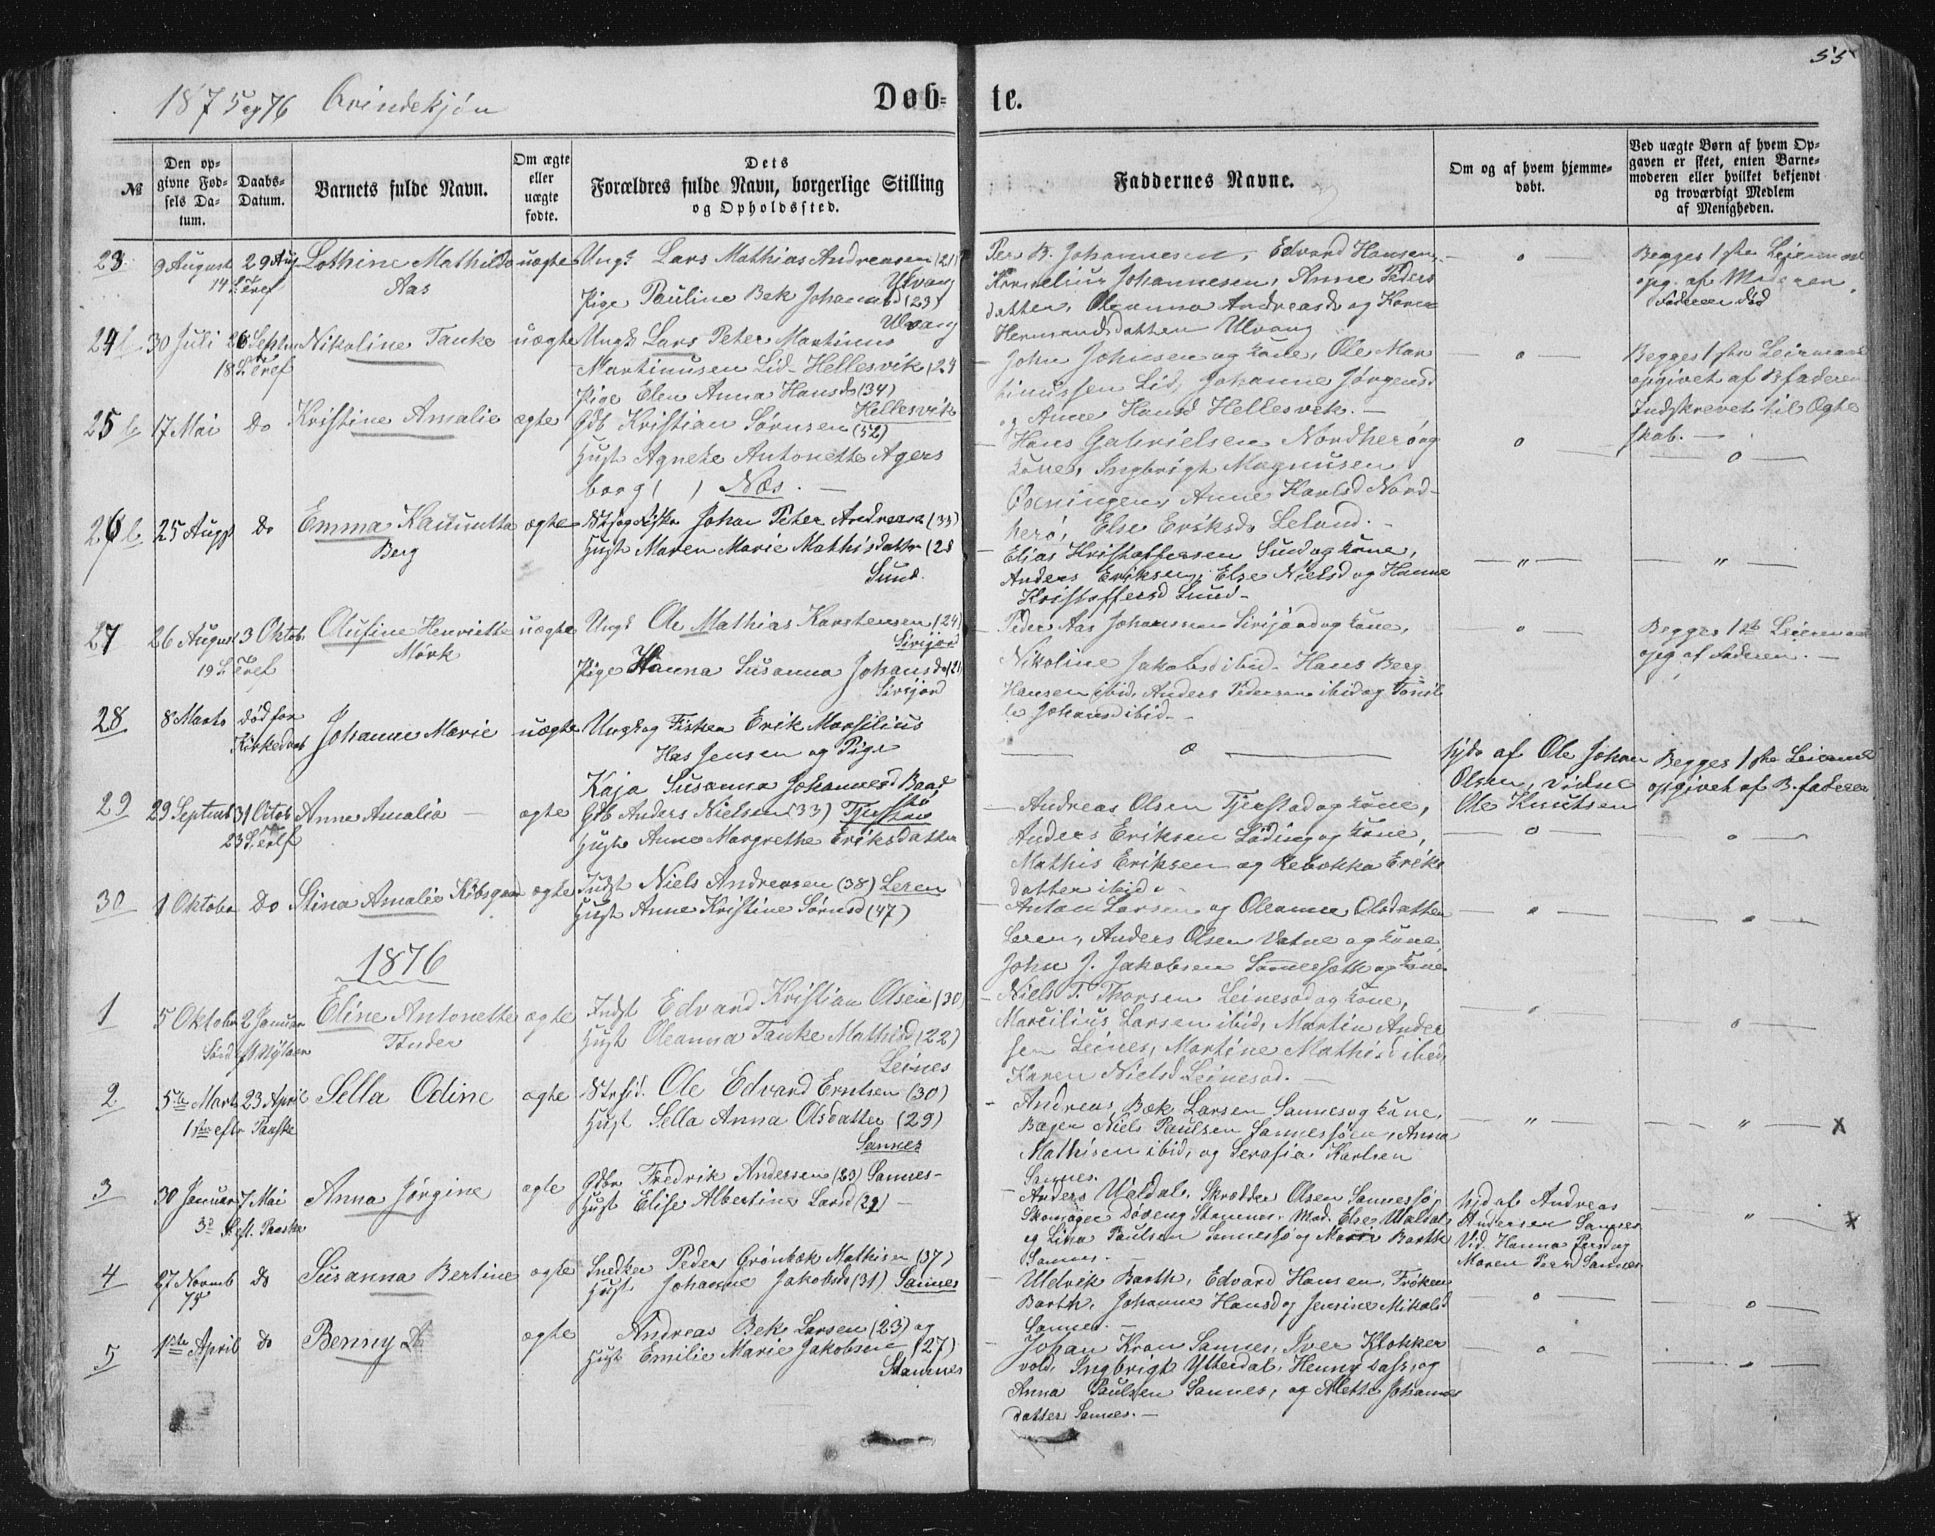 55
1875 og 76 Qvindekjøn
Døb-te.
№
Den opgivne Fødsels Datum.
Daabs-Datum.
Barnets fulde Navn.
Om ægte eller uægte fødte.
Dets Forældres fulde Navn, borgerlige Stilling og Opholdssted.
Faddernes Navne.
Om og af hvem hjemmedøbt.
Ved uægte Børn af hvem Opgaven er skeet, enten Barnemoderen eller hvilket bekjendt og troværdigt Medlem af Menigheden.
23
9 August
29 Aug
Lothine Mathilde
Aas
uægte
Ungk Lars Mathias Andreasen (21)
Ulvang
Pige Pauline Bek Johannsd (23)
Ulvang
Per B. Johannesen, Edvard Hansen,
Kornelius Johannesen, Anne Peders
datter, Oleanna Andreasd og Karen
Hermandsdatter Ulvang
o
Begges 1ste Leiermaal
opg. af Moderen,
Faderen død
24
30 Juli
26 Septbr
Nikoline Tanke
uægte
Ungk Lars Peter Martinus
Martinusen Lid-Hellesvik (24
Pige Elen Anna Hansd (34)
Hellesvik
John Johnsen og Kone, Ole Mar
tinussen Lid, Johanne Jørgensd
og Anne Hansd Hellesvik. —
o
Begges 1ste Leiermaal
opgivet af B.faderen
Indskrevet til Ægte
skab. —
25
17 Mai
Do
Kristine Amalie
ægte
Gdb Kristian Sørnsen (52)
Hust Agnete Antonette Agers
borg ( ) Næs. —
Hans Gabrielsen Nordherø og
Kone, Ingbrigt Magnusen
Øveningen, Anne Karlsd Nord-
herø, Else Eriksd Leland. —
o
o
26
25 Augst
Do
Emma
Berg
ægte
Johan Peter Andreas (33)
Hust Maren Marie Mathisdatter (28
Sund.
Elias Kristoffersen Sund og Kone,
Anders Eriksen, Else Nielsd og Hanne
Kristoffersd Sund. —
"
"
27
26 August
3 Oktob
Olufine Henriette
Mørk
uægte
Ungk Ole Mathias Karstensen (24)
Sirijord
Pige Hanna Susanna Johansd (21
Sirijord
Peder Aas Johannsen Sirijord og Kone,
Nikoline Jakobsd ibid. Hans Berg
Hansen ibid, Anders Pedersen ibid og
Johansd ibid. —
o
Begges 1ste Leiermaal
opg af Faderen. —
28
8 Marts
død før
Kirkedaab
Johanne Marie
uægte
Ungk og Fisker Erik Marsilius
Has Jensen og Pige
Kaja Susanna Johannesd
o
Hjdø af Ole Johan
Olsen, vidne
Ole Knutsen
Begges 1ste Leiermaal
opgivet af B.faderen
29
29 Septemb
31 Octob
Anne Amalia
ægte
Gdb Anders Nielsen (33) Tjerstad
Hust Anne Margrethe Eriksdatter
Andreas Olsen Tjerstad og Kone,
Anders Eriksen Løding og Kone,
Mathis Eriksen og Rebokka Eriks
datter ibid.
o
o
30
1 Oktober
Do
Stina Amalie Kibsgaard
ægte
Indst Niels Andreasen (38) Leren
Hust Anne Kristine Sørnsd (47)
Anton Larsen og Oleanne Olsdatter
Leren, Anders Olsen Vatne og Kone
John J. Jakobsen og Kone
o
o
1876
1
5 Oktober
2 Januar
Eline Antonette
Tønder
ægte
Indst Edvard Kristian Olsen (30
Hust Oleanna Tanke Mathisd (22)
Leines
Niels T. Thorsen Leinesod og Kone,
Marcilius Larsen ibid, Martin Ander
sen Leines, Martine Mathisd ibid,
Karen Nielsd Leinesod. —
o
o
2
5te Marts
23 April
Sella Odine
ægte
Strsid. Ole Edvard Erntsen (30)
Hust Sella Anna Olsdatter (29)
Sannes
Andreas Bæk Larsen Sannes og Kone,
Bager Niels Paulsen Sannessøen, Anna
Mathisen ibid, og Serafia Karlsen
Sannes.
"
" X
3
30 Januar
7 Mai
Anna Jørgine
ægte
Gdbr Fredrik Andersen (23) Sannes-
Hust Elise Albertine Larsd (22) —
Anders Ualdal, Skrædder Olsen Sannessø,
Skomager Døveng Stamnes. Mad. Else Waldal
og Lina Paulsen Sannessø og Marie Barth
Sannes. —
Hjd af Andreas
Andersen Sannes
Vid. Hanna Persd og
Maren Persd Sannes
" X
4
27 Novemb
75
do
Susanna Bertine
ægte
Snedker Peder Grønbæk Mathisen (37)
Hust Johanne Jakobsd (31) Sannes
Uldrik Barth, Edvard Hansen, Frøken
Barth, Johanne Hansd og Jensine Mikalsd
Sannes. —
o
o
5
1ste April
do
Benny
ægte
Andreas Bek Larsen (23) og
Hust Emilie Marie Jakobsen (27)
Stamnes
Johan Kron Sannes, Iver Klokker
vold, Ingbrigt Ytterdal, Henny Dass, og
Anna Paulsen Sannes, og Alette Johannes
datter Sannes. —
o
o